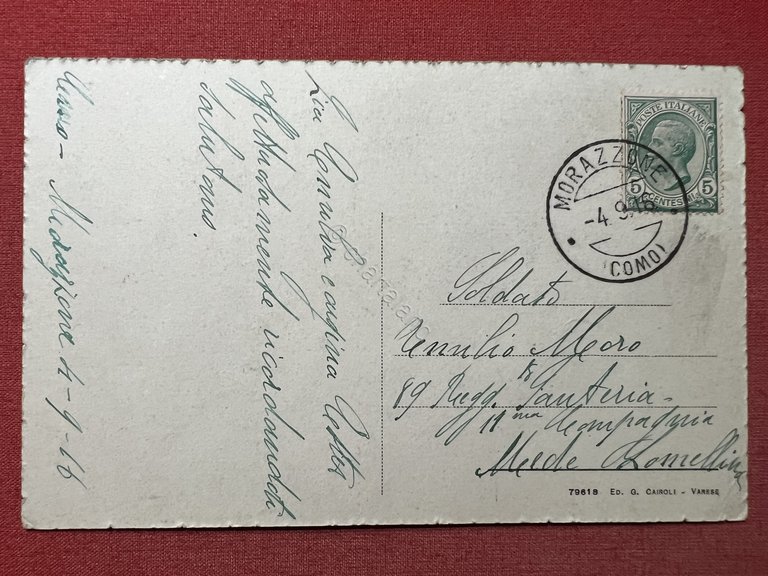 Zia Emilia e cugina
affettuosamente ricordandoti
salutano.
Morazzone 4-9-16
POSTE ITALIANE
5 5
CENTESIMI
MORAZZONE
-4.9.16
(COMO)
Soldato
Emilio Moro
89 Regg. Fanteria
11ma Compagnia
Mede Lomellina
79618 ED. G. CAIROLI - VARESE